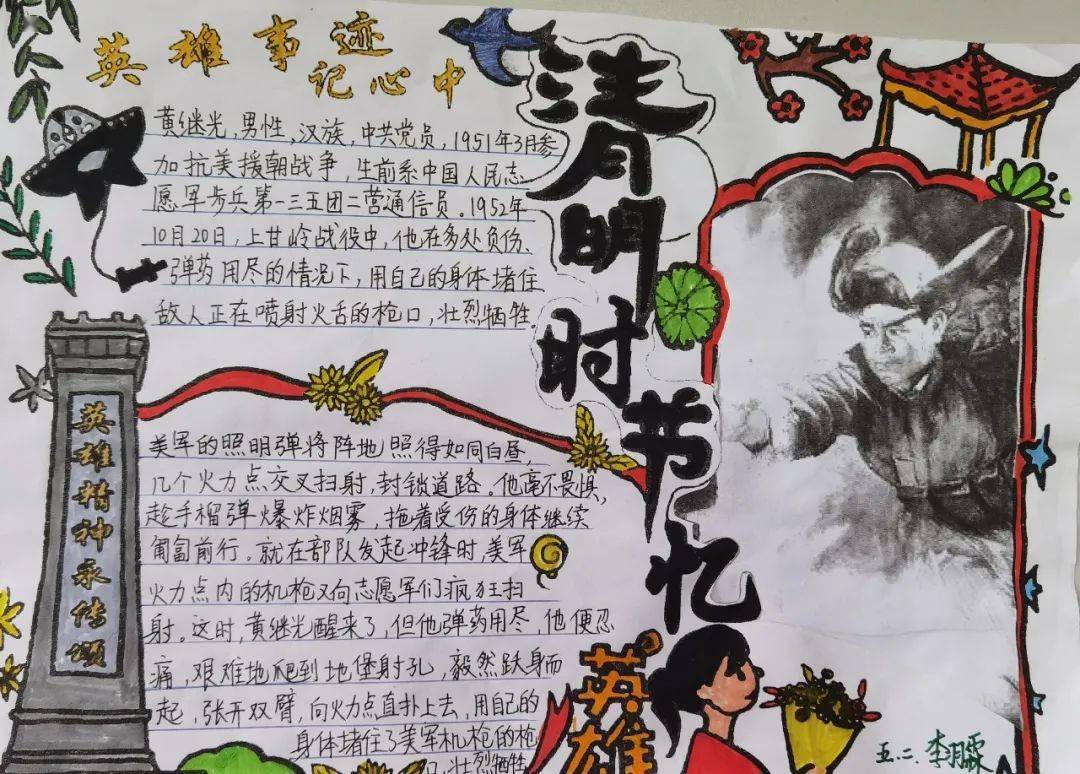 英雄事迹
记心中
黄继光,男性、汉族,中共党员,1951年3月参
加抗美援朝战争,生前系中国人民志
愿军步兵第一三五团二营通信员。1952年
10月20日,上甘岭战役中,他在多处负伤、
弹药用尽的情况下,用自己的身体堵住
敌人正在喷射火舌的枪口,壮烈牺牲。
清明时节忆
英雄
英雄精神永传颂
美军的照明弹将阵地照得如同白昼,
几个火力点交叉扫射,封锁道路。他毫不畏惧,
趁手榴弹爆炸烟雾,拖着受伤的身体继续
匍匐前行。就在部队发起冲锋时,美军
火力点内的机枪又向志愿军们疯狂扫
射。这时,黄继光醒来了,但他弹药用尽,他便忍
痛,艰难地爬到地堡射孔,毅然跃身而
起,张开双臂,向火力点直扑上去,用自己的
身体堵住了美军机枪的枪
口,壮烈牺牲
五.二.李玥霖